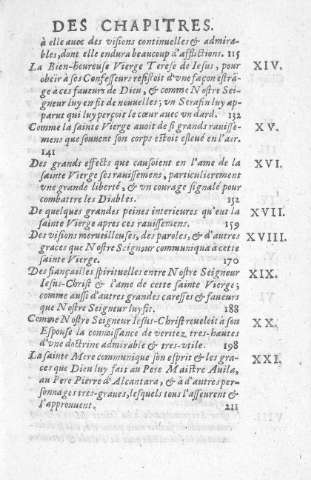 DES CHAPITRES.
à elle auec des visions continuelles & admira-
bles, dont elle endura beaucoup d'afflictions. 115
La Bien-heureuse Vierge Terese de Iesus, pour XIV.
obeïr à ses Confesseurs resistoit d'vne façon estrã-
ge à ces faueurs de Dieu, & comme Nostre Sei-
gneur luy en fit de nouuelles; vn Serafin luy ap-
parut qui luy perçoit le cœur auec vn dard. 132
Comme la sainte Vierge auoit de si grands rauisse- XV.
mens que souuent son corps estoit esleué en l'air.
141
Des grands effects que causoient en l'ame de la XVI.
sainte Vierge ses rauissemens, particulierement
vne grande liberté, & vn courage signalé pour
combattre les Diables. 151
De quelques grandes peines interieures qu'eut la XVII.
sainte Vierge apres ces rauissemens. 159
Des visions merueilleuses, des paroles, & d'autres XVIII.
graces que Nostre Seigneur communiqua à cette
sainte Vierge. 170
Des fiançailles spirituelles entre Nostre Seigneur XIX.
Iesus-Christ & l'ame de cette sainte Vierge;
comme aussi d'autres grandes caresses & faueurs
que Nostre Seigneur luy fit. 188
Comme Nostre Seigneur Iesus-Christ reueloit à son XX.
Espouse la connaissance de veritez tres-hautes
d'vne doctrine admirable & tres-vtile. 198
La sainte Mere communique son esprit & les gra- XXI.
ces que Dieu luy fait au Pere Maistre Auila,
au Pere Pierre d'Alcantara, & à d'autres per-
sonnages tres-graues, lesquels tous l'asseurent &
l'approuuent. 211